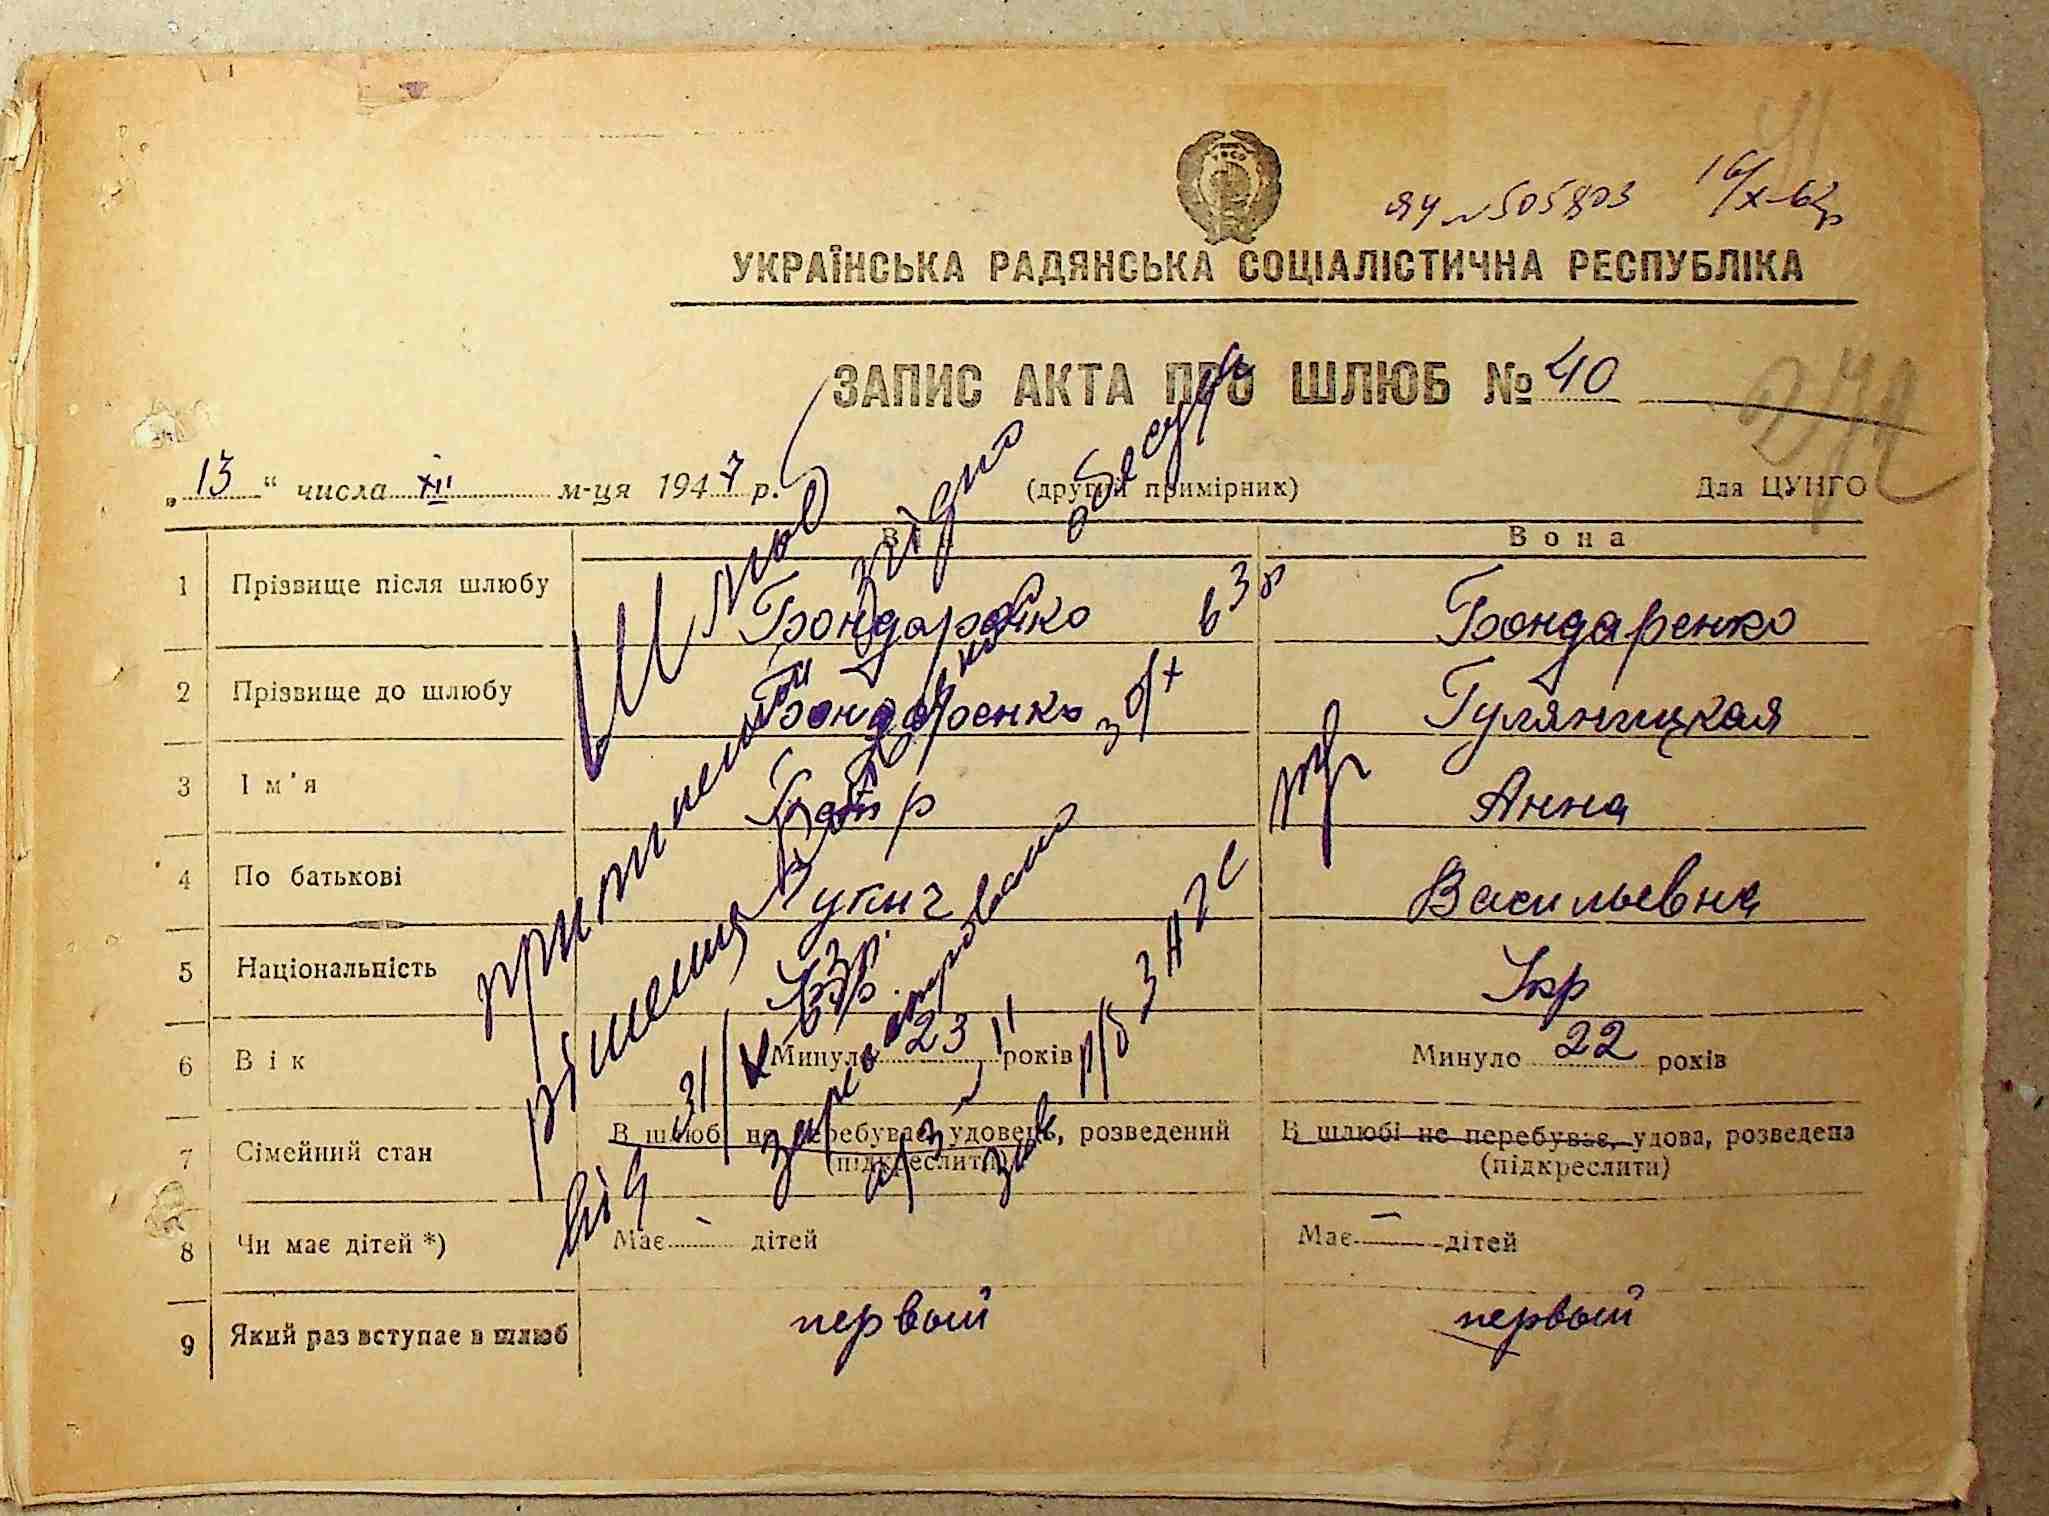 ЯЧ № 505803 16/X-63р
УКРАЇНСЬКА РАДЯНСЬКА СОЦІАЛІСТИЧНА РЕСПУБЛІКА
ЗАПИС АКТА ПРО ШЛЮБ № 40
„13“ числа XII м-ця 1947 р. (другий примірник) Для ЦУНГО
Він Вона
1 Прізвище після шлюбу Бондаренко Бондаренко
2 Прізвище до шлюбу Бондаренко Гуляницкая
3 Ім'я Петр Анна
4 По батькові Лукич Васильевна
5 Національність Укр Укр
6 Вік Минуло 23 років Минуло 22 років
7 Сімейний стан В шлюбі не перебуває, удовець, розведений В шлюбі не перебуває, удова, розведена
(підкреслити) (підкреслити)
8 Чи має дітей *) Має — дітей Має — дітей
9 Який раз вступає в шлюб первый первый
Шлюб
припинений згідно
рішення обл суда
від 31/X 63р.
зареєстровано
в Р/б ЗАГС